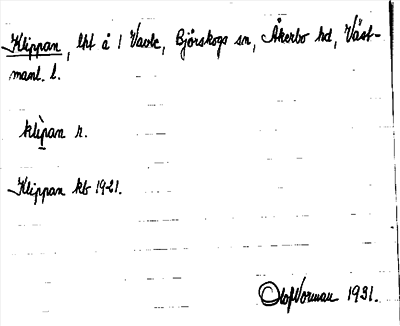 Klippan, lht å 1 Vavle, Björskogs sn, Åkerbo hd, Väst-
manl. l.
klìpan n.
Klippan kb 1921.
Olof Norman 1931.